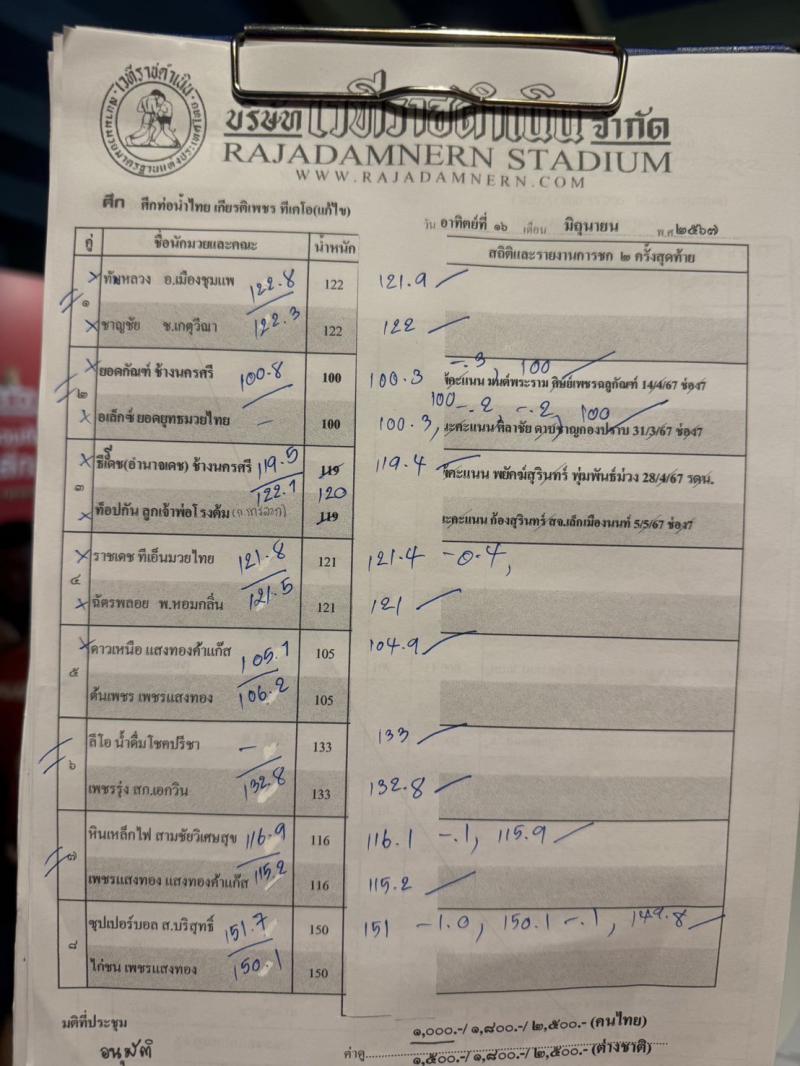 เวทีราชดำเนิน
บริษัท เวทีราชดำเนิน จำกัด
RAJADAMNERN STADIUM
WWW.RAJADAMNERN.COM
ศึก ศึกท่อน้ำไทย เกียรติเพชร ทีเคโอ(แก้ไข)
วัน อาทิตย์ที่ ๑๖ เดือน มิถุนายน พ.ศ ๒๕๖๗
คู่ ชื่อนักมวยและคณะ น้ำหนัก สถิติและรายงานการชก ๒ ครั้งสุดท้าย
๑
ทัพหลวง อ.เมืองชุมแพ 122.8 122 121.9
ชาญชัย ช.เกตุวีณา 122.3 122 122
๒
ยอดกัณฑ์ ช้างนครศรี 100.8 100 100.3 -.3 100
ชัคะแนน มนต์พระราม ศิษย์เพชรฉลูกัณฑ์ 14/4/67 ช่อง7
อเล็กซ์ ยอดยุทธมวยไทย - 100 100.3, 100 -.2 -.2 100
31/3/67 ช่อง7
๓
ธีเดช(อำนาจเดช) ช้างนครศรี 119.5 119 119.4
พยัคฆ์สุรินทร์ พุ่มพันธ์ม่วง 28/4/67 รดน.
ท็อปกัน ลูกเจ้าพ่อโรงต้ม 122.1 119 120
ก้องสุรินทร์ สจ.เล็กเมืองนนท์ 5/5/67 ช่อง7
๔
ราชเดช ทีเอ็นมวยไทย 121.8 121 121.4 -0.4,
ฉัตรพลอย พ.หอมกลิ่น 121.5 121 121
๕
ดาวเหนือ แสงทองค้าแก๊ส 105.1 105 104.9
ต้นเพชร เพชรแสงทอง 106.2 105
๖
ลีโอ น้ำดื่มโชคปรีชา - 133 133
เพชรรุ่ง สก.เอกวิน 132.8 133 132.8
๗
หินเหล็กไฟ สามชัยวิเศษสุข 116.9 116 116.1 -.1, 115.9
เพชรแสงทอง แสงทองค้าแก๊ส 115.2 116 115.2
๘
ซุปเปอร์บอล ส.บริสุทธิ์ 151.7 150 151 -1.0, 150.1 -.1, 149.8
ไก่ชน เพชรแสงทอง 150.1 150
มติที่ประชุม
อนุมัติ
๑,๐๐๐.-/ ๑,๘๐๐.-/ ๒,๕๐๐.- (คนไทย)
ค่าดู
๑,๕๐๐.-/ ๑,๘๐๐.-/ ๒,๕๐๐.- (ต่างชาติ)